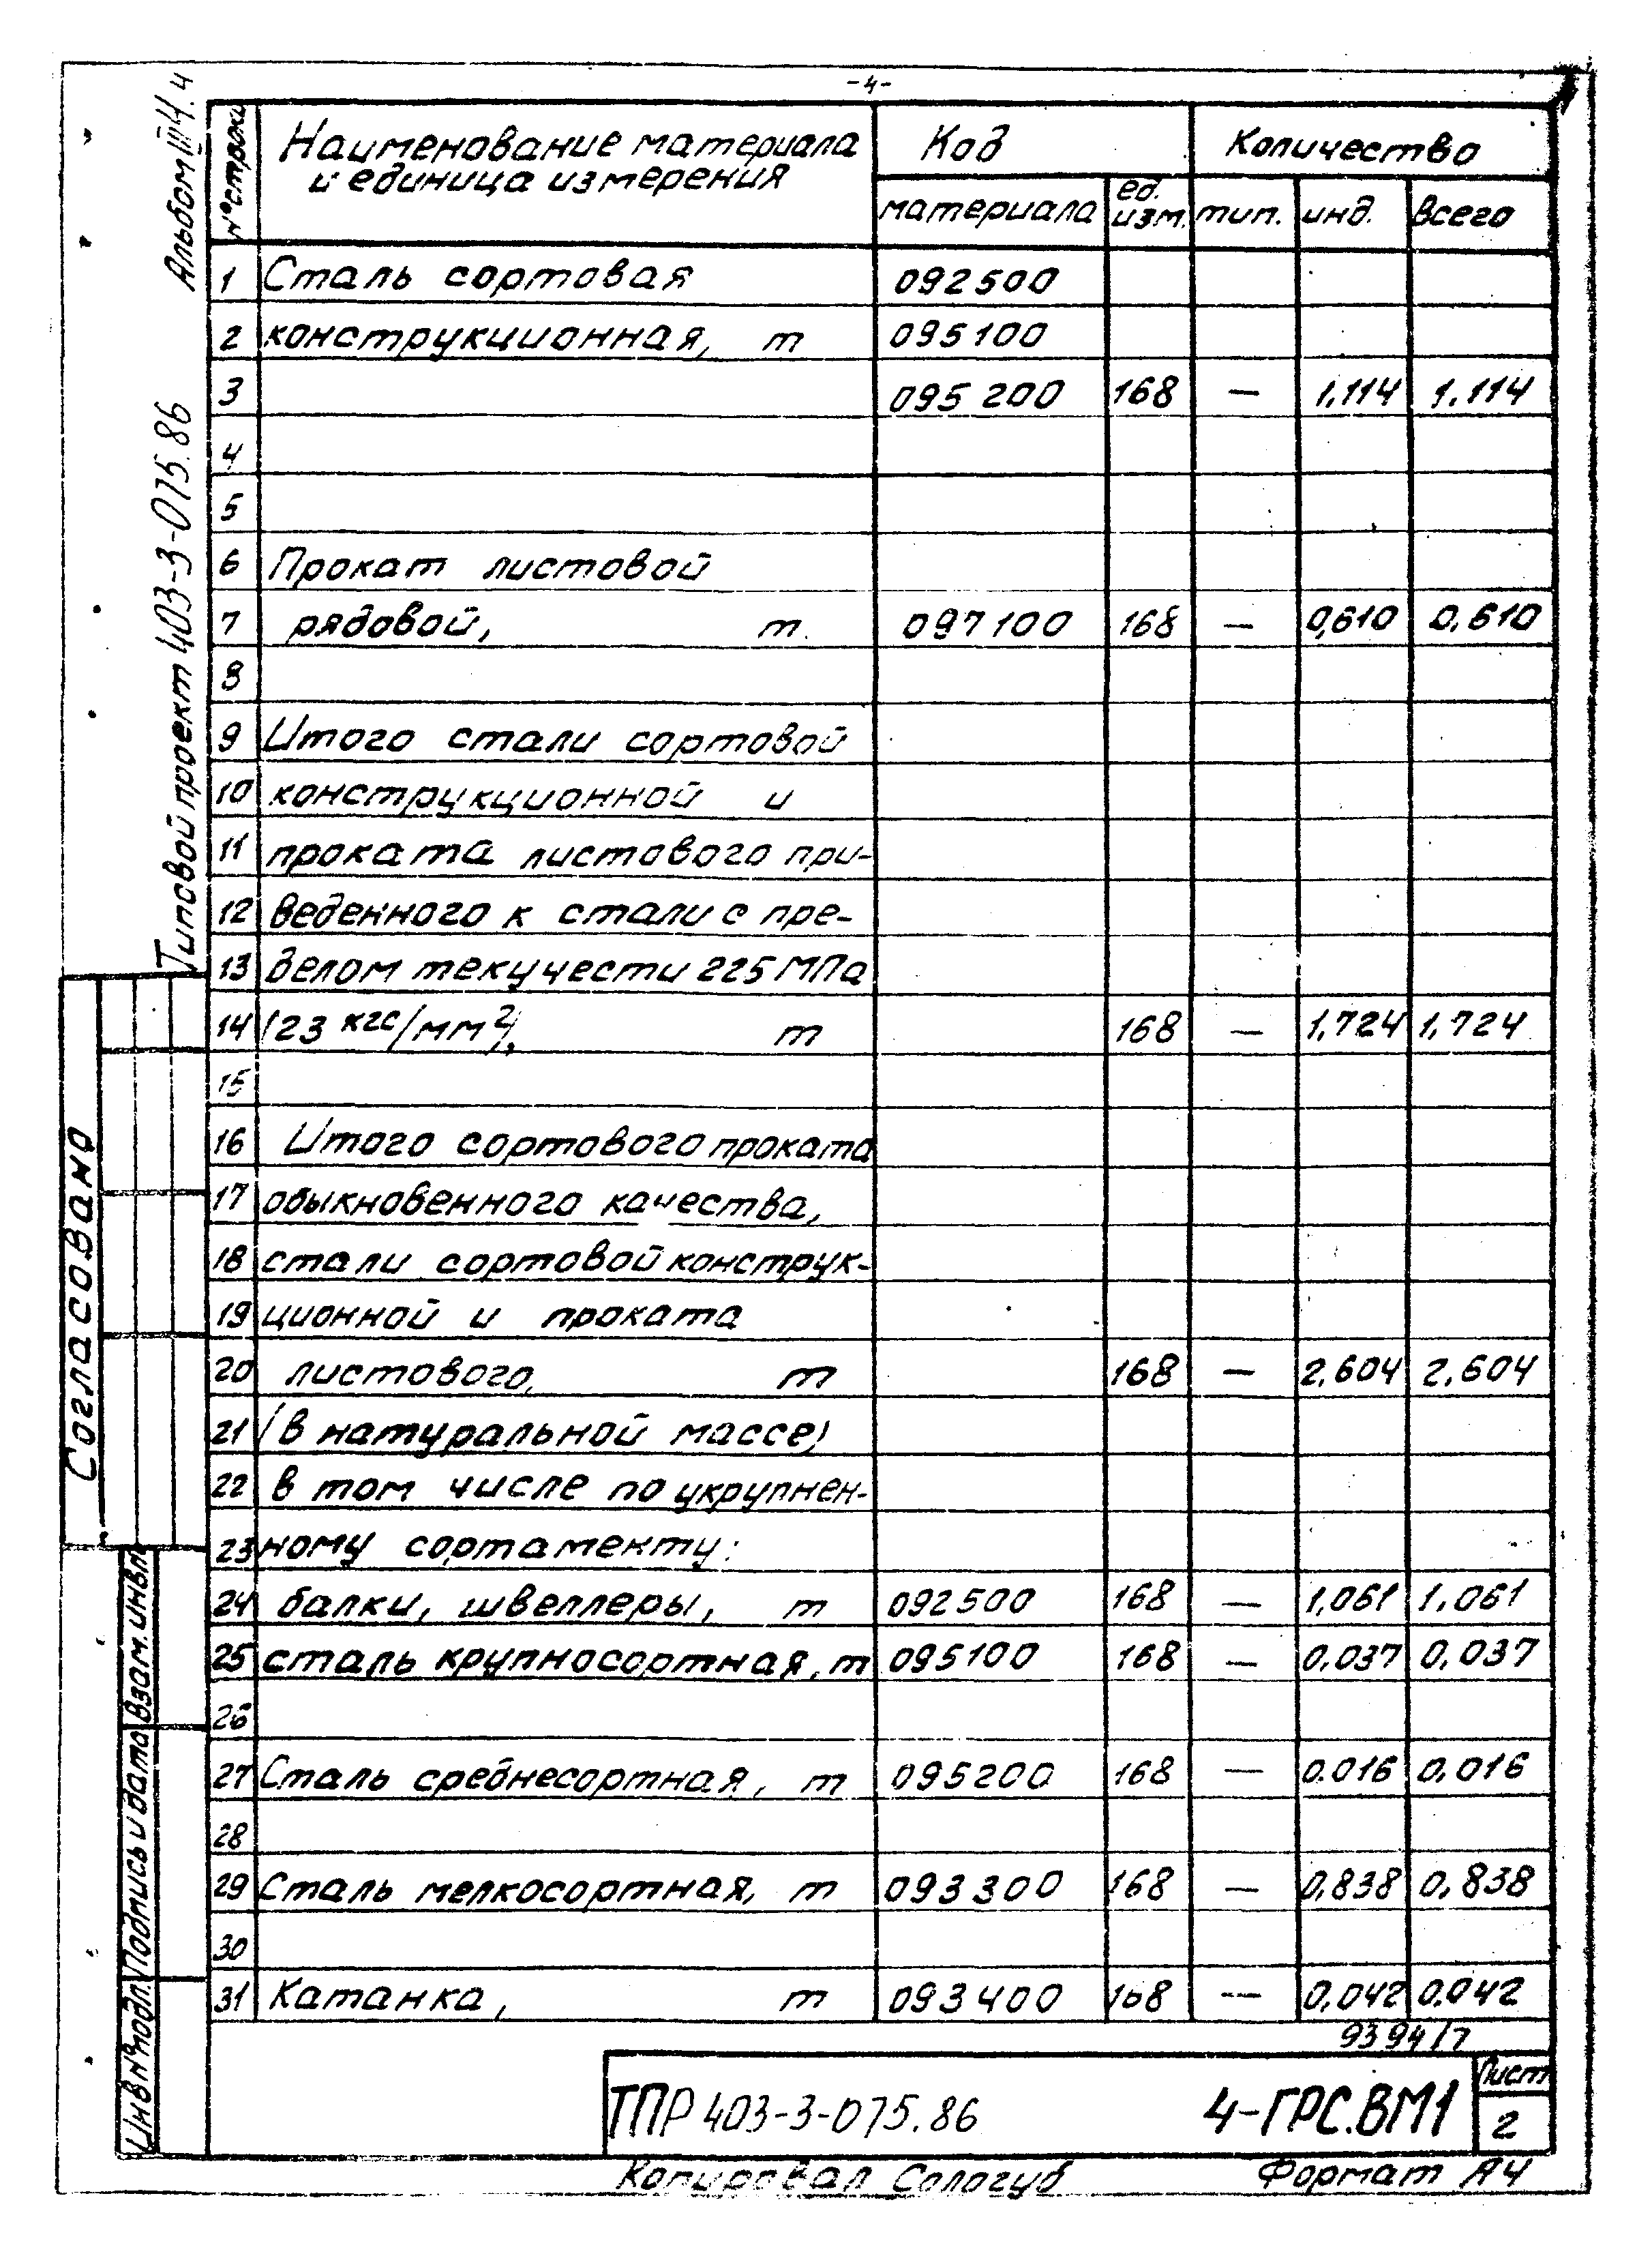 -4-
Альбом III Ч.4
Типовой проект 403-3-075.86
Согласовано
Взам. инв.№
Подпись и дата
Инв № подл.
№ строки
Наименование материала
и единица измерения
Код
Количество
материала
ед.
изм.
тип.
инд.
всего
1 Сталь сортовая 092500
2 конструкционная, т 095100
3 095200 168 — 1,114 1.114
4
5
6 Прокат листовой
7 рядовой, т. 097100 168 — 0,610 0,610
8
9 Итого стали сортовой
10 конструкционной и
11 проката листового при-
12 веденного к стали с пре-
13 делом текучести 225 МПа
14 (23 кгс/мм²), т 168 — 1,724 1,724
15
16 Итого сортового проката
17 обыкновенного качества,
18 стали сортовой конструк-
19 ционной и проката
20 листового, т 168 — 2,604 2,604
21 (в натуральной массе)
22 в том числе по укрупнен-
23 ному сортаменту:
24 балки, швеллеры, т 092500 168 — 1,061 1.061
25 сталь крупносортная, т 095100 168 — 0,037 0,037
26
27 Сталь среднесортная, т 095200 168 — 0.016 0,016
28
29 Сталь мелкосортная, т 093300 168 — 0,838 0,838
30
31 Катанка, т 093400 168 — 0,042 0.042
9394/7
ТПР 403-3-075.86 4-ГРС.ВМ1
Лист
2
Копировал Сологуб Формат А4